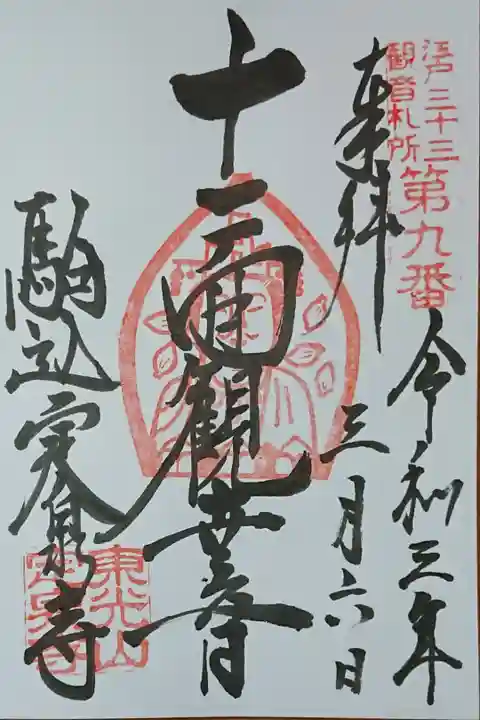 江戸三十三
観音札所
第九番
奉拝
令和三年
三月六日
十一面観世音
駒込定泉寺
東光山
定泉寺